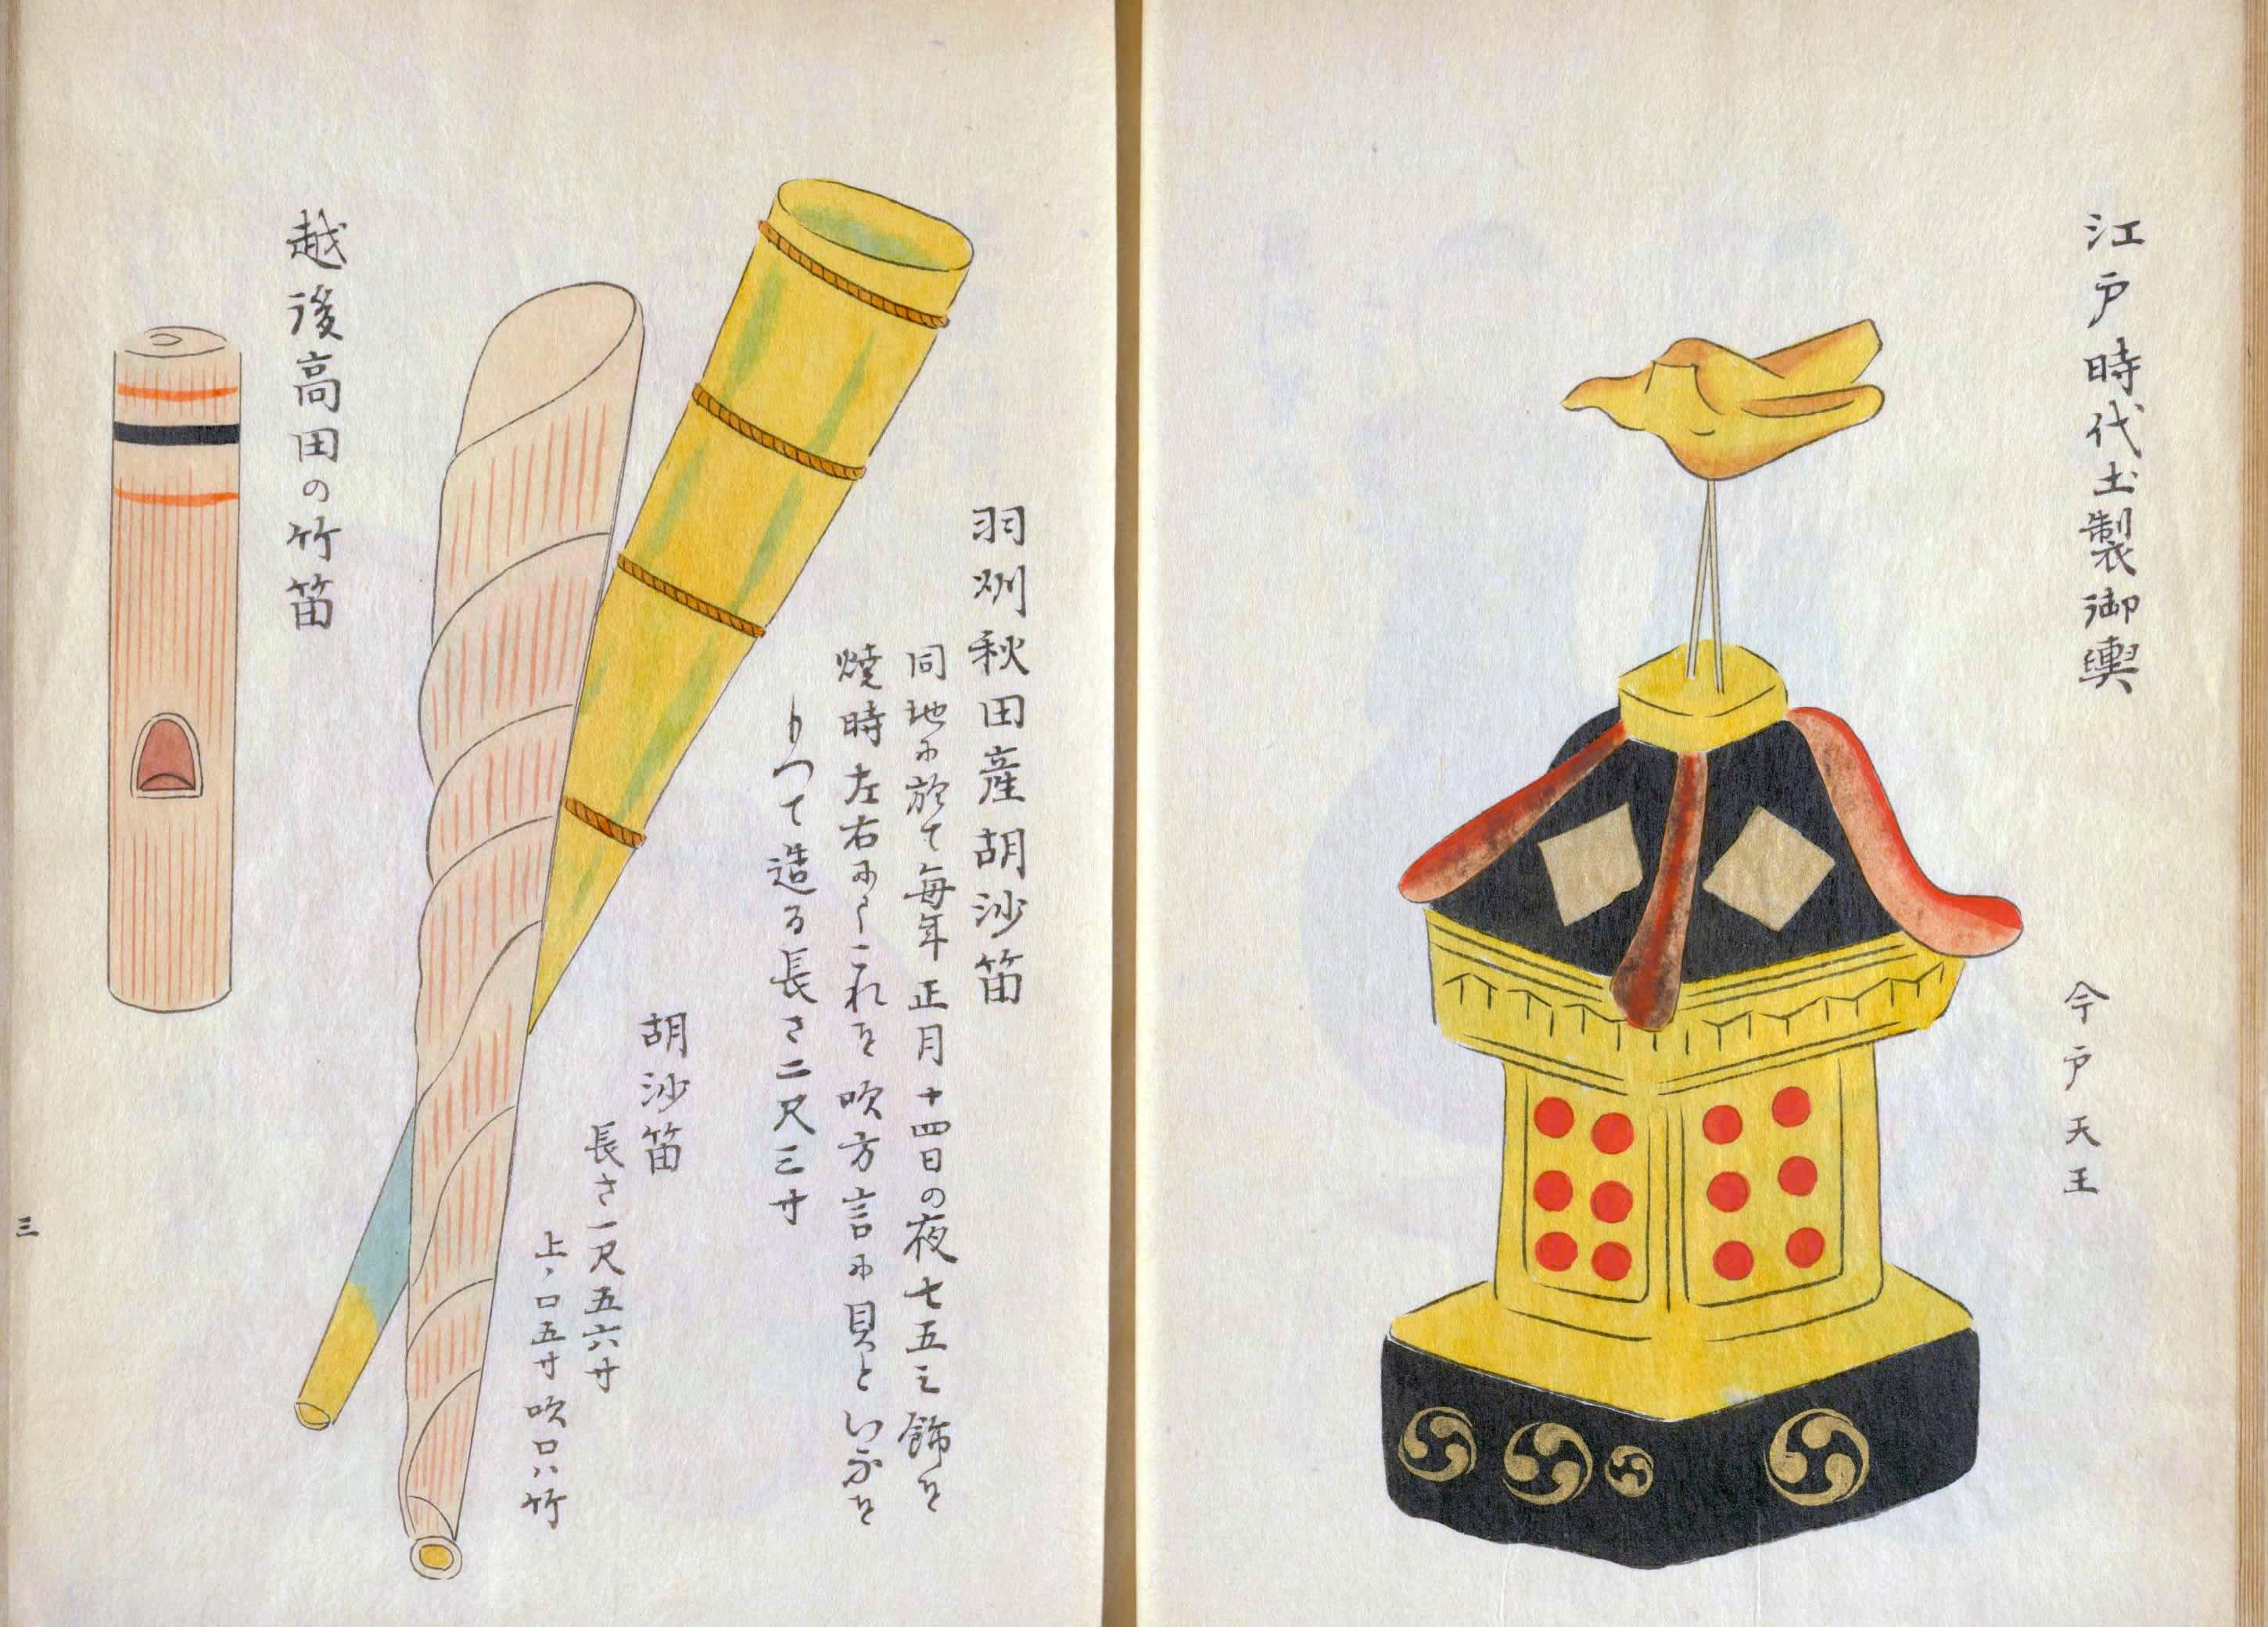 江戸時代土製御輿
今戸天王
羽州秋田産胡沙笛
同地に於て毎年正月十四日の夜七五三飾を
焼時左右にてこれを吹方言に貝といふを
もつて造る長さ二尺三寸
胡沙笛
長さ一尺五六寸
上ハ口五寸吹口ハ竹
越後高田の竹笛
三